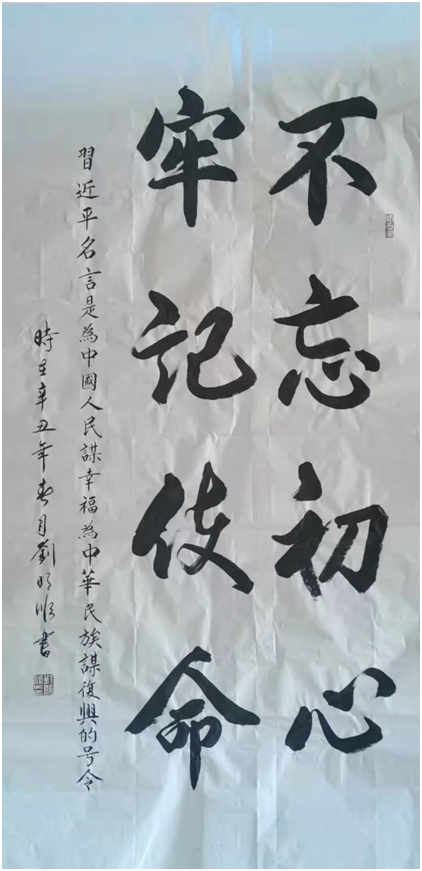 不忘初心
牢記使命
習近平名言是為中國人民謀幸福為中華民族謀復興的号令
時在辛丑年春月劉明順書